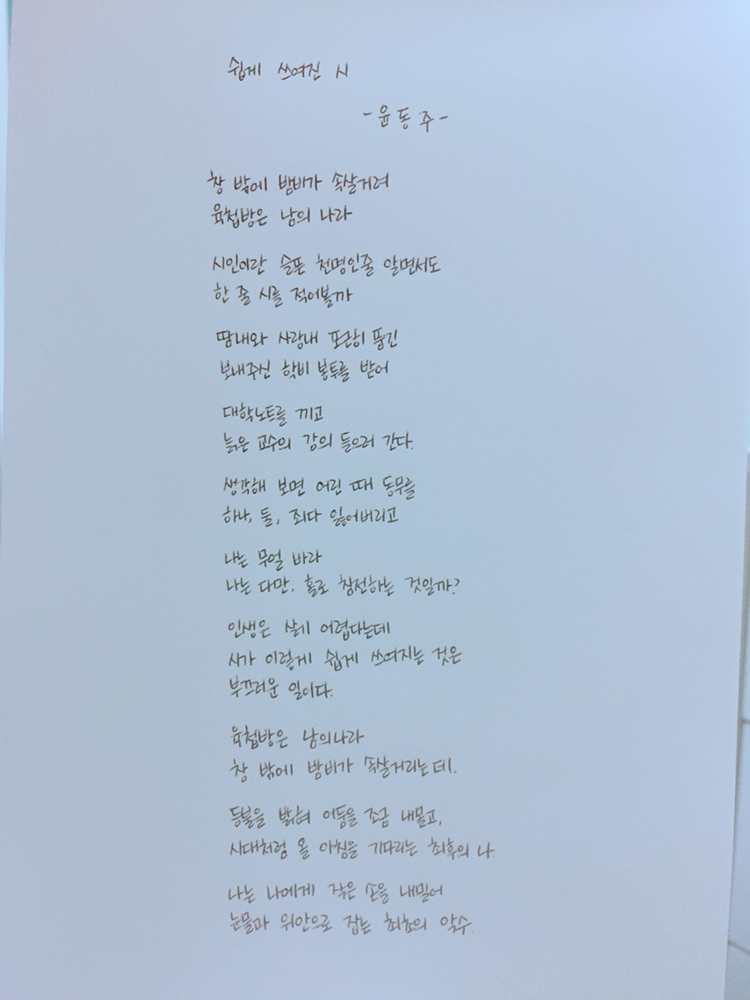 쉽게 쓰여진 시
-윤동주-
창 밖에 밤비가 속살거려
육첩방은 남의 나라
시인이란 슬픈 천명인줄 알면서도
한 줄 시를 적어볼까
땀내와 사랑내 포근히 품긴
보내주신 학비 봉투를 받어
대학노트를 끼고
늙은 교수의 강의 들으러 간다.
생각해 보면 어린 때 동무를
하나, 둘, 죄다 잃어버리고
나는 무얼 바라
나는 다만, 홀로 침전하는 것일까?
인생은 살기 어렵다는데
시가 이렇게 쉽게 쓰여지는 것은
부끄러운 일이다.
육첩방은 남의나라
창 밖에 밤비가 속살거리는데.
등불을 밝혀 어둠을 조금 내몰고,
시대처럼 올 아침을 기다리는 최후의 나
나는 나에게 작은 손을 내밀어
눈물과 위안으로 잡는 최초의 악수.